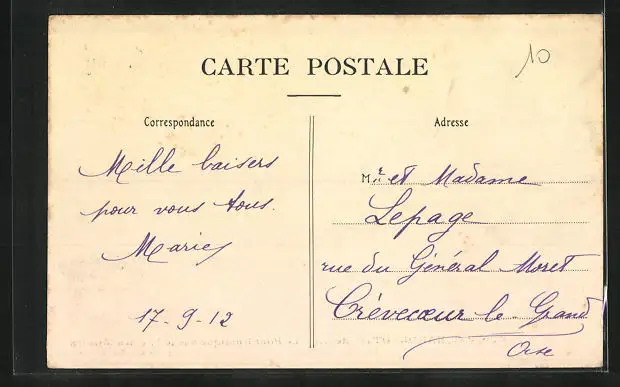 CARTE POSTALE
10
Correspondance
Mille baisers
pour vous tous.
Marie
17-9-12
Adresse
M.r et Madame
Lepage
rue du Général Moret
Crèvecœur le Grand
Oise